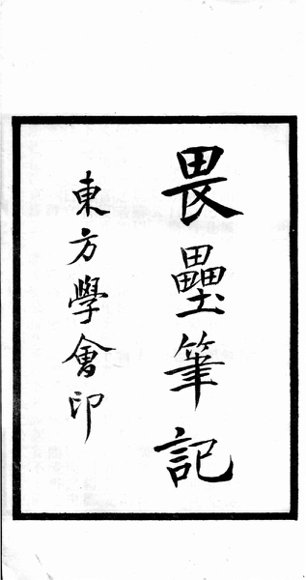 畏壘筆記
東方學會印